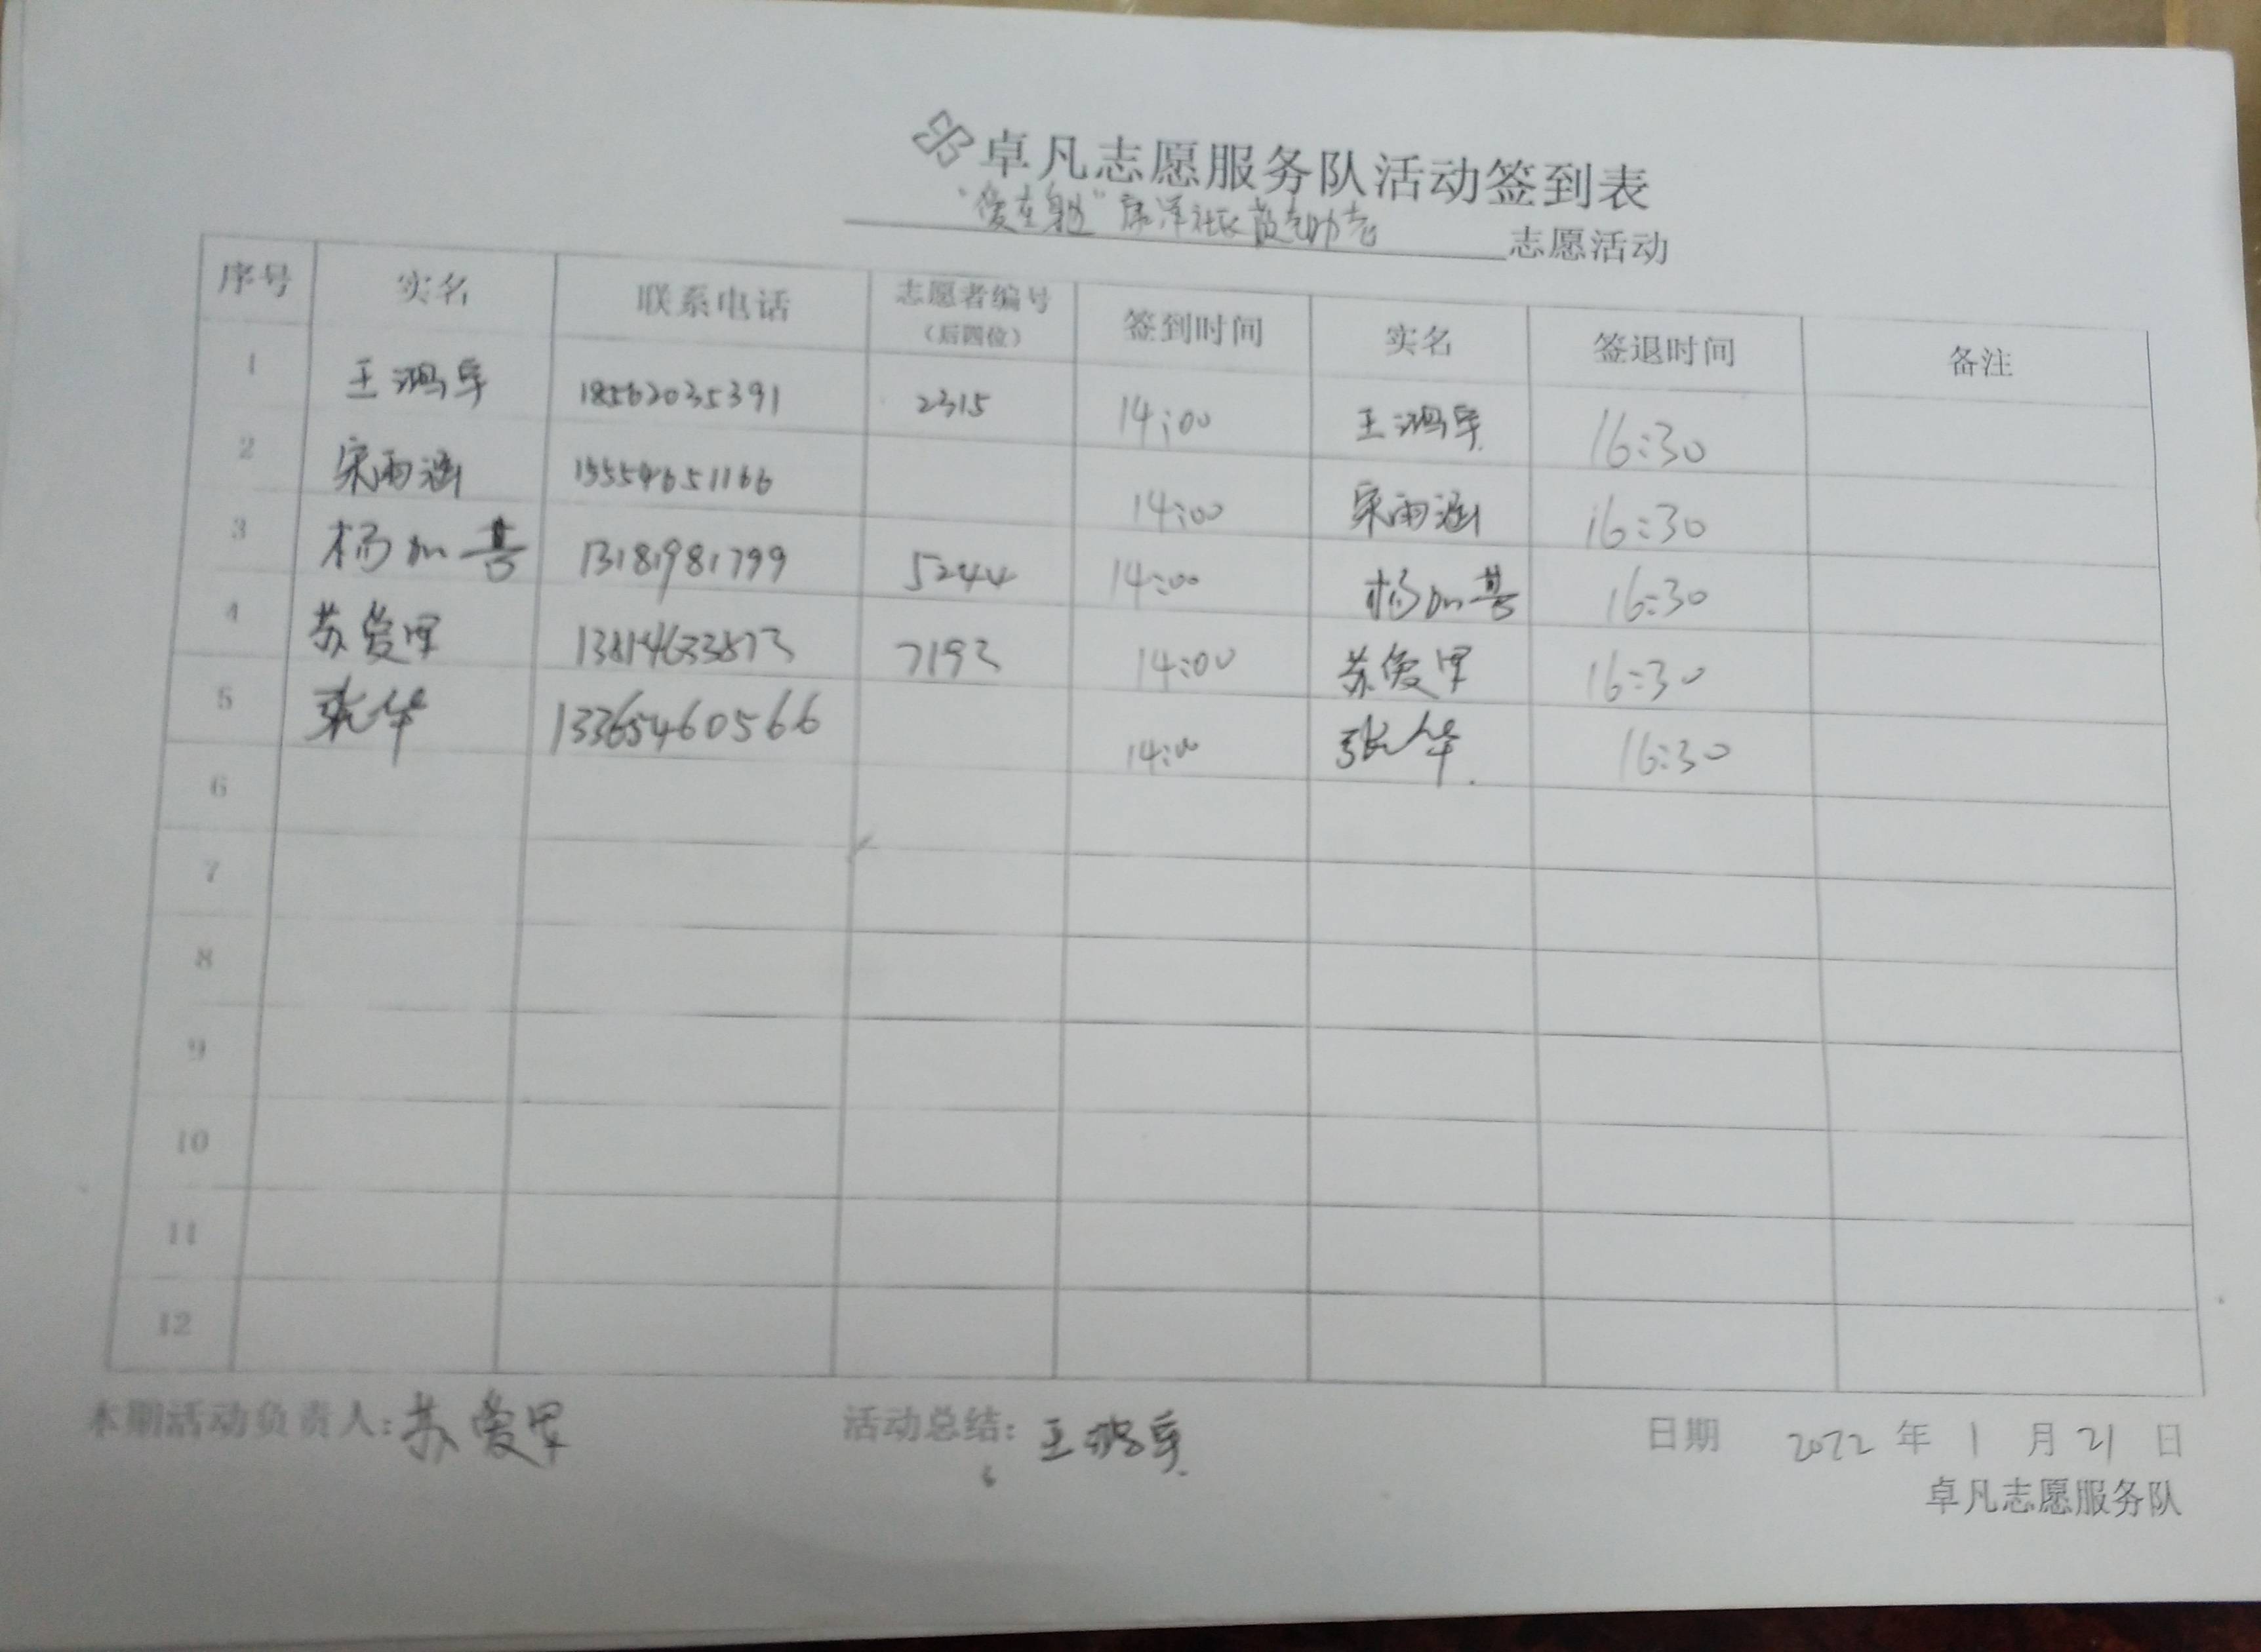 卓凡志愿服务队活动签到表
"爱在身边"康泽社区 志愿活动
序号 实名 联系电话 志愿者编号（后四位） 签到时间 实名 签退时间 备注
1 王鸿军 18562035391 2315 14:00 王鸿军 16:30
2 宋雨涵 15554651166 14:00 宋雨涵 16:30
3 杨加喜 13181981799 5244 14:00 杨加喜 16:30
4 苏爱军 7193 14:00 苏爱军 16:30
5 张华 13365460566 14:00 张华 16:30
6
7
8
9
10
11
12
本期活动负责人：苏爱军 活动总结：王鸿军 日期 2022年1月21日
卓凡志愿服务队